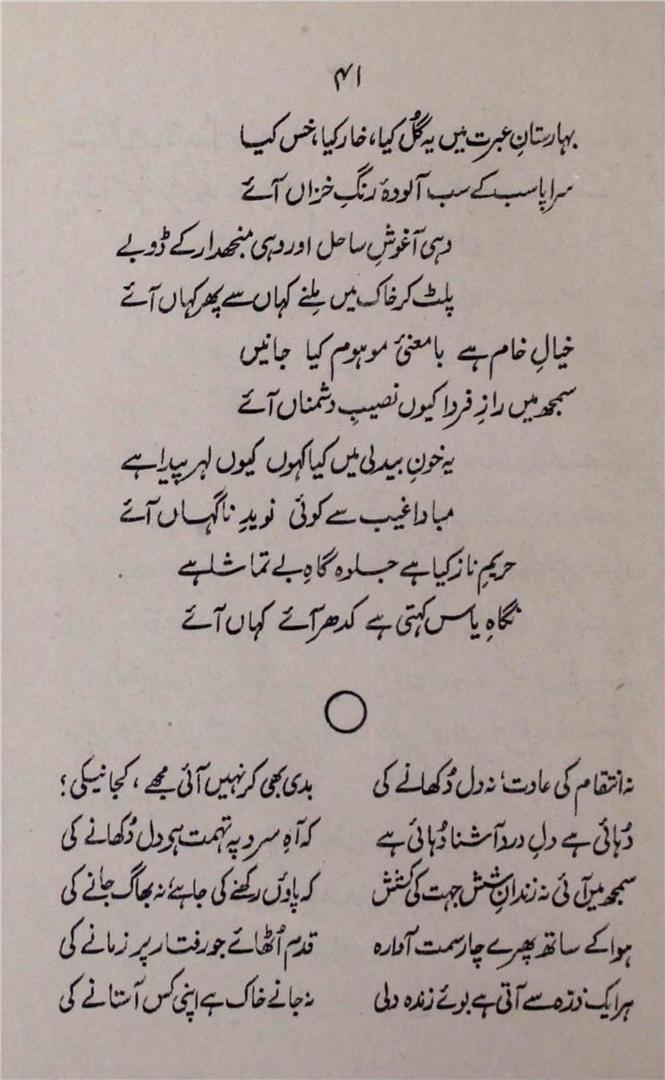 ۴۱
بہارستانِ عبرت میں یہ گُل کیا، خار کیا، خس کیا
سراپا سب کے سب آلودۂ رنگِ خزاں آئے
وہی آغوشِ ساحل اور وہی منجھدار کے ڈوبے
پلٹ کر خاک میں مِلنے کہاں سے پھر کہاں آئے
خیالِ خام ہے یا معنیٔ موہوم کیا جانیں
سمجھ میں رازِ فردا کیوں نصیبِ دشمناں آئے
یہ خونِ بیدلی میں کیا کہوں کیوں لہر پیدا ہے
مبادا غیب سے کوئی نویدِ ناگہاں آئے
حریمِ ناز کیا ہے جلوہ گاہِ بے تماشا ہے
نگاہِ یاس کہتی ہے کدھر آئے کہاں آئے
نہ انتقام کی عادت، نہ دل دُکھانے کی بدی بھی کر نہیں آئی مجھے، کجا نیکی؟
دُہائی ہے دلِ درد آشنا دُہائی ہے کہ آہِ سرد پہ تہمت ہو دل دُکھانے کی
سمجھ میں آئی نہ زندانِ شش جہت کی کشش کہ پاؤں رکھنے کی جا ہے، نہ بھاگ جانے کی
ہوا کے ساتھ پھرے چار سمت آوارہ قدم اُٹھائے جو رفتار پر زمانے کی
ہر ایک ذرّہ سے آتی ہے بوئے زندہ دلی نہ جانے خاک ہے اپنی کس آستانے کی